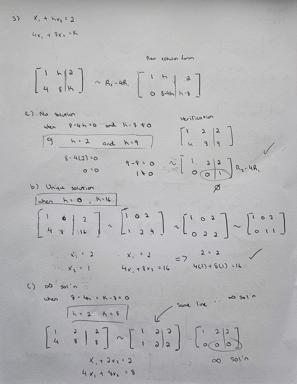 3) x₁ + hx₂ = 2
4x₁ + 8x₂ = k
Row echelon form
[1 h | 2
4 8 | k] ~ R₂-4R₁ [1 h | 2
0 8-4h | k-8]
a) No solution
when 8-4h=0 and k-8≠0
h=2 and k=9
8-4(2)=0
0=0
9-8≠0
1≠0
Verification
[1 2 | 2
4 8 | 9]
~ [1 2 | 2
0 0 | 1] R₂-4R₁ ✓
∅
b) Unique solution
when h=0, k=16
[1 0 | 2
4 8 | 16] ~ [1 0 2
1 2 4] ~ [1 0 2
0 2 2] ~ [1 0 2
0 1 1]
x₁ = 2
x₂ = 1
x₁ = 2
4x₁+8x₂=16
=> 2 = 2
4(2)+8(1)=16 ✓
c) ∞ sol'n
when 8-4h = k-8=0
h=2 k=8
same line ∞ sol'n
[1 2 | 2
4 8 | 8] ~ [1 2 | 2
1 2 | 2] [1 2 | 2
0 0 0]
x₁ + 2x₂ = 2
4x₁ + 8x₂ = 8
∞ sol'n